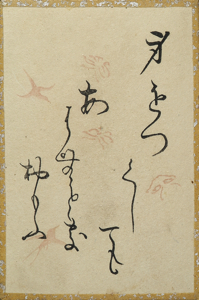 身をつ
くし
ても
あ
はむとぞ
おもふ